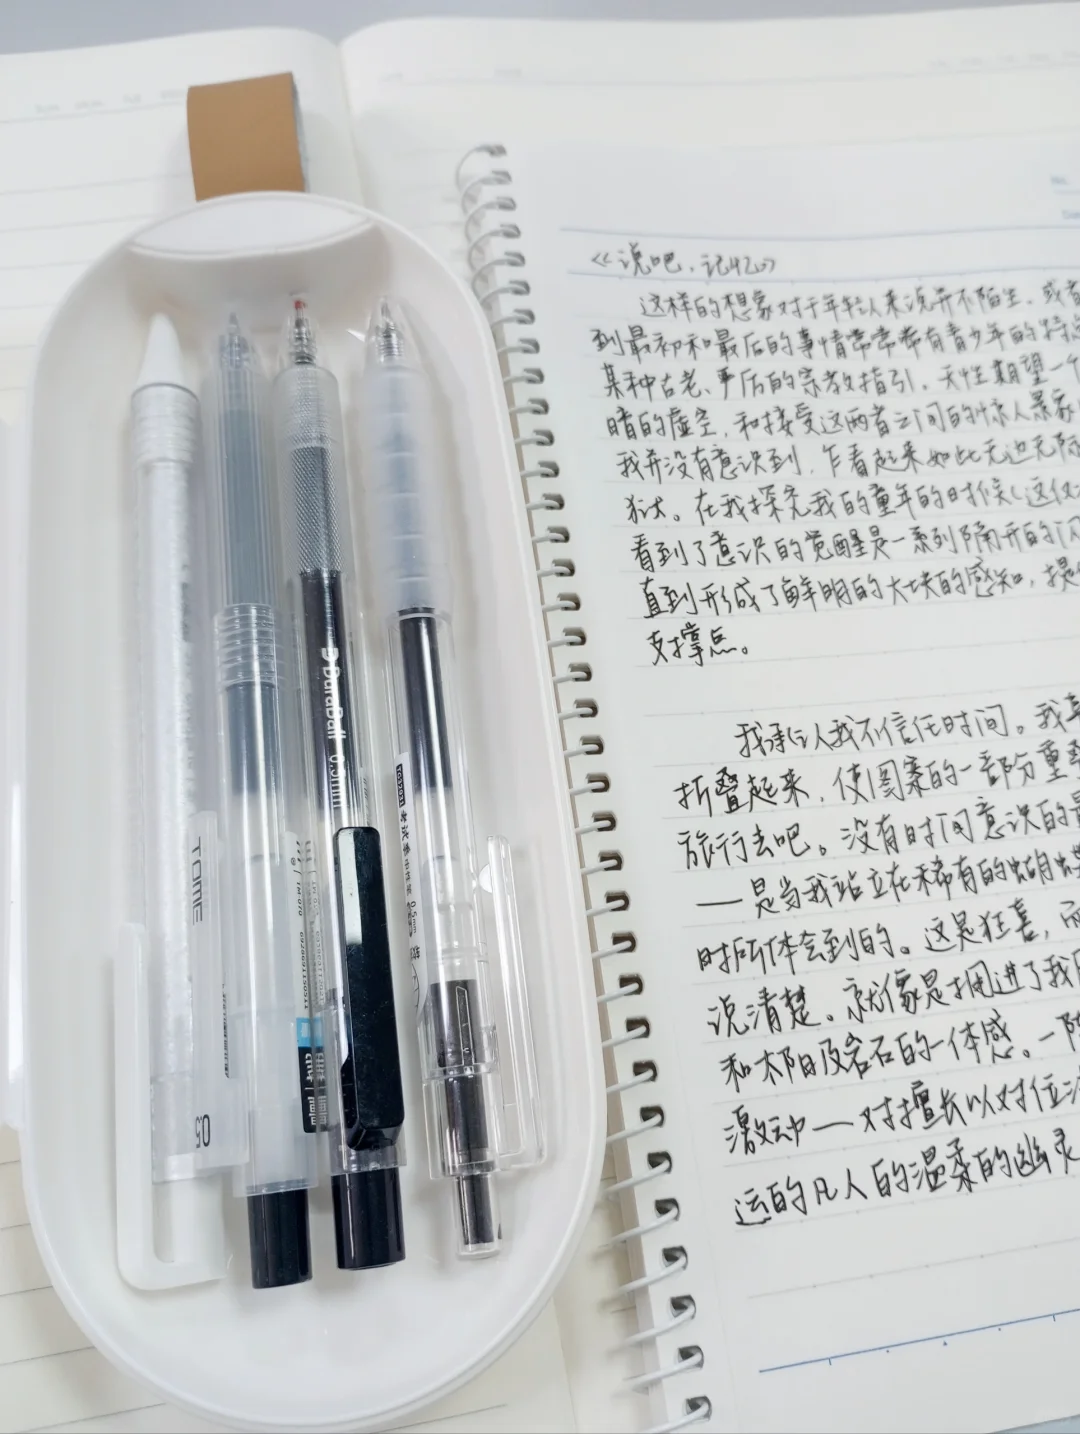 《说吧，记忆》
这样的想象对于年轻人来说并不陌生，或者
到最初和最后的事情常常带有青少年的特点
某种古老、严厉的宗教指引，天性期望一个
暗的虚空，和接受这两者之间的惊人景象
我并没有意识到，乍看起来如此无边无际
狱。在我探究我的童年的时候（这仅次
看到了意识的觉醒是一系列隔开的闪
直到形成了鲜明的大块的感知，提供
支撑点。
我承认我不信任时间。我喜
折叠起来，使图案的一部分重叠
旅行去吧。没有时间意识的最
—是当我站立在稀有的蝴蝶
时所体会到的。这是狂喜，而
说清楚。就像是拥进了我
和太阳及岩石的一体感。一阵
激动—对擅长以对位法
运的凡人的温柔的幽灵
TOME
0.5
DuraBall 0.5mm
6928693150511
考试 中性笔 0.5mm